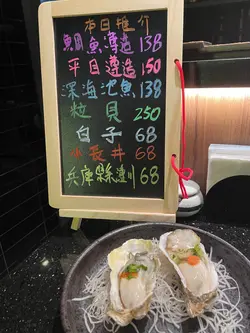 本日推介
鯛魚薄造 138
平目薄造 150
深海池魚 138
粒貝 250
白子 68
水長井 68
兵庫縣 68